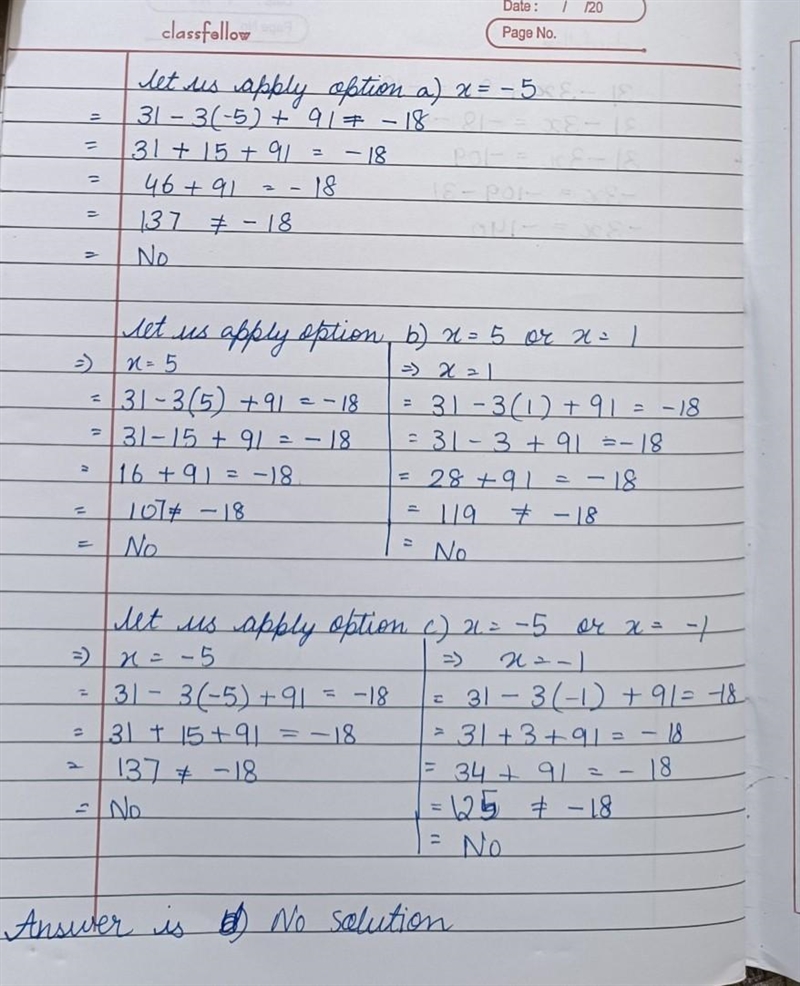 Date : / /20
classfellow
Page No.
let us apply option a) x = -5
= 31 - 3(-5) + 91 = -18
= 31 + 15 + 91 = -18
= 46 + 91 = -18
= 137 ≠ -18
= No
let us apply option b) x = 5 or x = 1
=> x = 5
= 31 - 3(5) + 91 = -18
= 31 - 15 + 91 = -18
= 16 + 91 = -18
= 107 ≠ -18
= No
=> x = 1
= 31 - 3(1) + 91 = -18
= 31 - 3 + 91 = -18
= 28 + 91 = -18
= 119 ≠ -18
= No
let us apply option c) x = -5 or x = -1
=> x = -5
= 31 - 3(-5) + 91 = -18
= 31 + 15 + 91 = -18
= 137 ≠ -18
= No
=> x = -1
= 31 - 3(-1) + 91 = -18
= 31 + 3 + 91 = -18
= 34 + 91 = -18
= 125 ≠ -18
= No
Answer is d) No solution